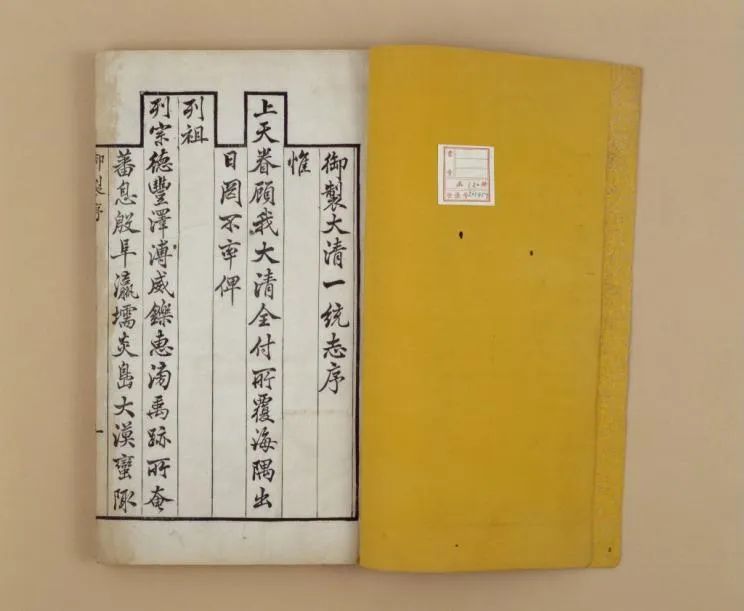 御製大清一統志序
惟
上天眷顧我大清全付所覆海隅出
日罔不率俾
列祖
列宗德豐澤溥威鑠惠滂禹跡所奄
蕃息殷阜瀛壖炎島大漠蠻陬
御製序 一